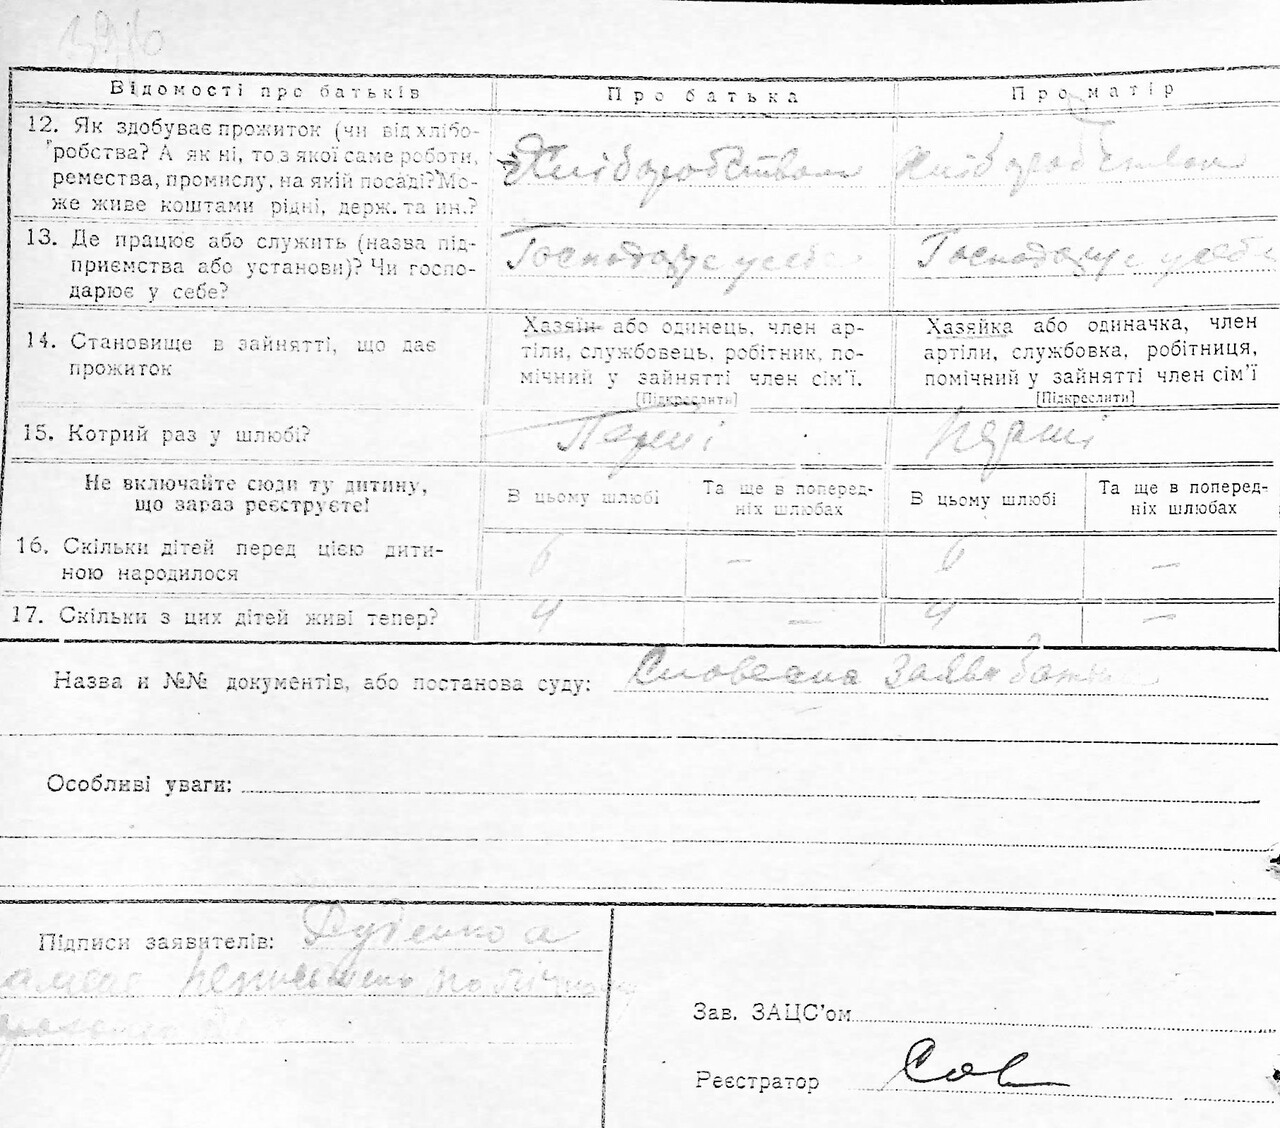 Відомості про батьків
Про батька
Про матір
12. Як здобуває прожиток (чи від хлібо-
робства? А як ні, то з якої саме роботи,
ремества, промислу, на якій посаді? Мо-
же живе коштами рідні, держ. та ин.?
Хліборобством
Хліборобством
13. Де працює або служить (назва під-
приємства або установи)? Чи госпо-
дарює у себе?
Господарує у себе
Господарує у себе
14. Становище в зайнятті, що дає
прожиток
Хазяїн або одинець, член ар-
тіли, службовець, робітник, по-
мічний у зайнятті член сім'ї.
[Підкреслити]
Хазяйка або одиначка, член
артіли, службовка, робітниця,
помічний у зайнятті член сім'ї
[Підкреслити]
15. Котрий раз у шлюбі?
Перші
Перші
Не включайте сюди ту дитину,
що зараз реєструєте!
В цьому шлюбі
Та ще в поперед-
ніх шлюбах
В цьому шлюбі
Та ще в поперед-
ніх шлюбах
16. Скільки дітей перед цією дити-
ною народилося
6
—
6
—
17. Скільки з цих дітей живі тепер?
4
—
4
—
Назва и №№ документів, або постанова суду: Словесна заява батька
Особливі уваги:
Підписи заявителів: Руденко а
Зав. ЗАЦС'ом
Реєстратор